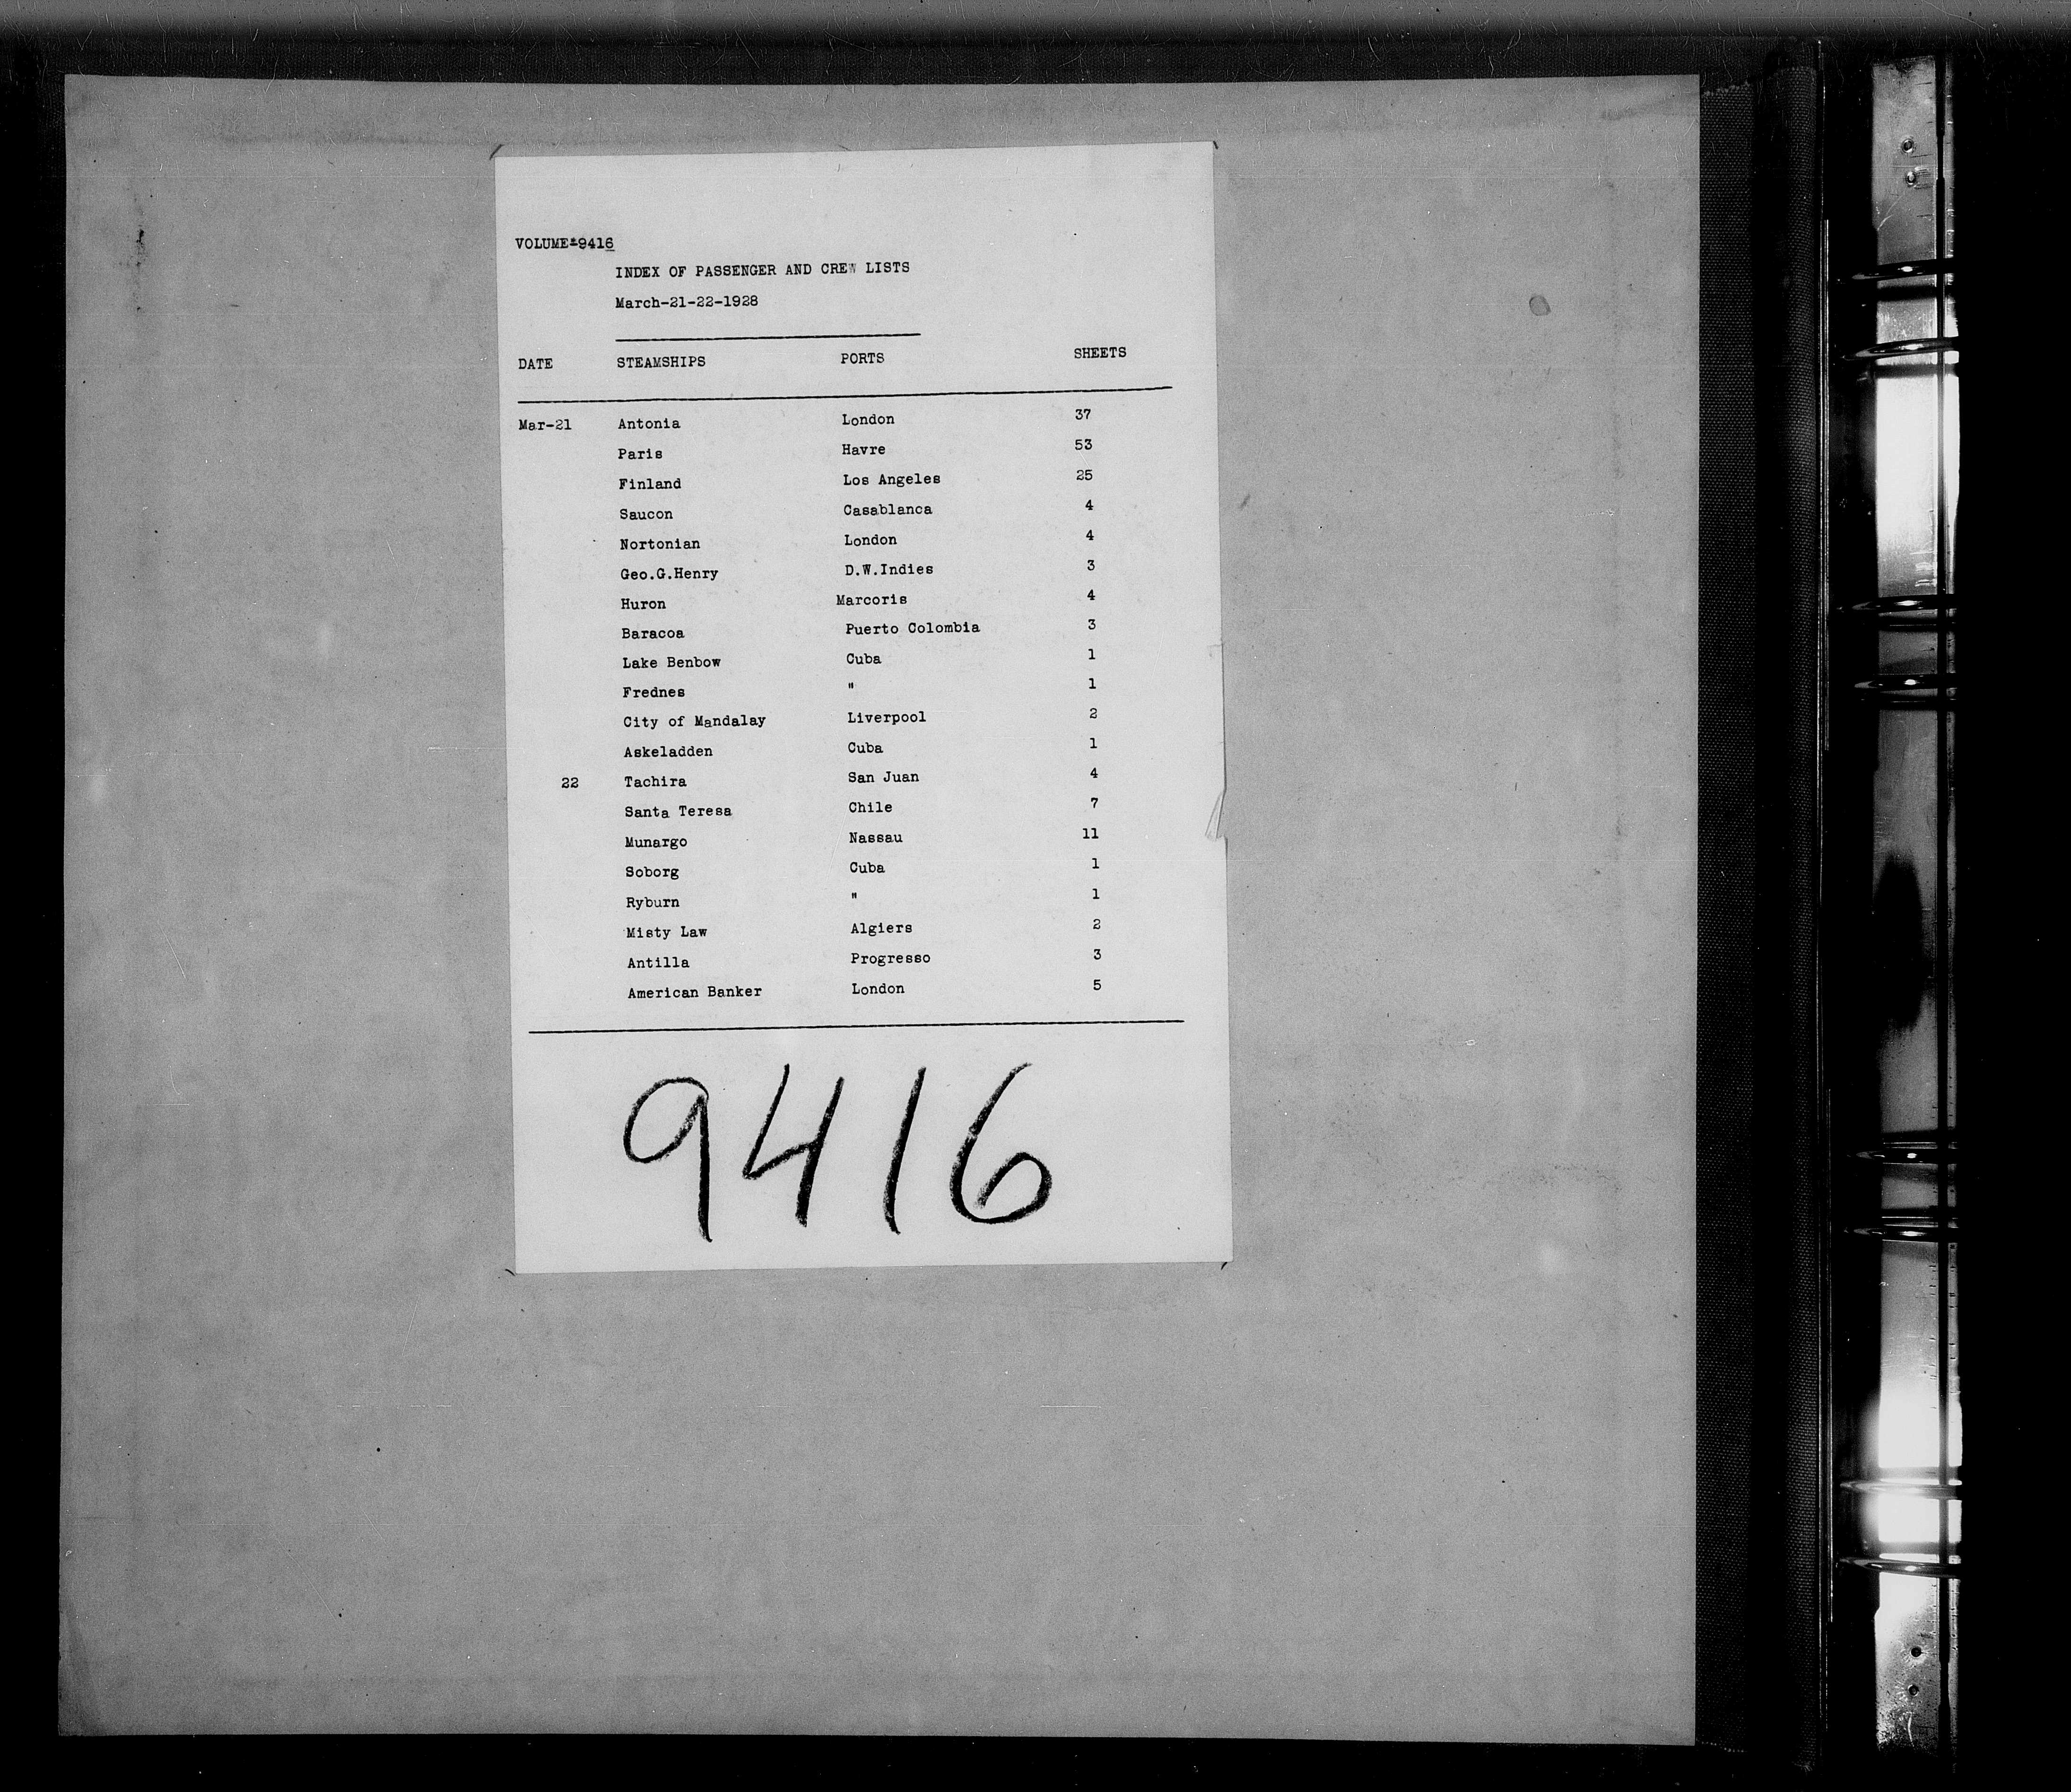 VOLUME-9416
INDEX OF PASSENGER AND CREW LISTS
March-21-22-1928
DATE STEAMSHIPS PORTS SHEETS
Mar-21 Antonia London 37
Paris Havre 53
Finland Los Angeles 25
Saucon Casablanca 4
Nortonian London 4
Geo.G.Henry D.W.Indies 3
Huron Marcoris 4
Baracoa Puerto Colombia 3
Lake Benbow Cuba 1
Frednes " 1
City of Mandalay Liverpool 2
Askeladden Cuba 1
22 Tachira San Juan 4
Santa Teresa Chile 7
Munargo Nassau 11
Soborg Cuba 1
Ryburn " 1
Misty Law Algiers 2
Antilla Progresso 3
American Banker London 5
9416